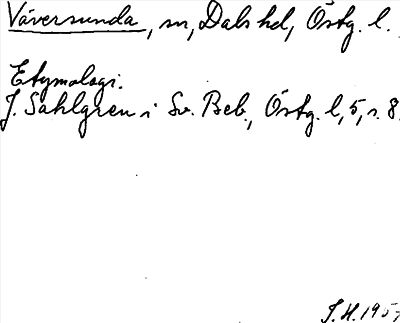 Väversunda, sn, Dals hd, Östg. l.
Etymologi.
J. Sahlgren i Sv. Beb., Östg. l, 5, s. 8.
J.H. 1957